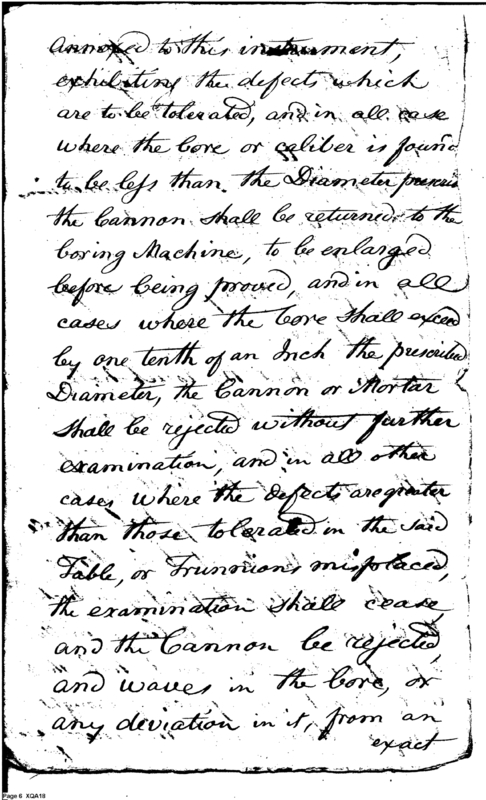 annexed to this instrument,
exhibiting the defects which
are to be tolerated, and in all case
where the bore or caliber is found
to be less than the Diameter prescri
the Cannon shall be returned to the
boring Machine, to be enlarged
before being proved, and in all
cases where the bore shall exceed
by one tenth of an Inch the prescribed
Diameter, the Cannon or Mortar
shall be rejected without further
examination, and in all other
cases where the defects are greater
than those tolerated in the said
Table, or Trunnions misplaced,
the examination shall cease,
and the Cannon be rejected,
and waves in the bore, or
any deviation in it, from an
exact
Page 6 XQA18